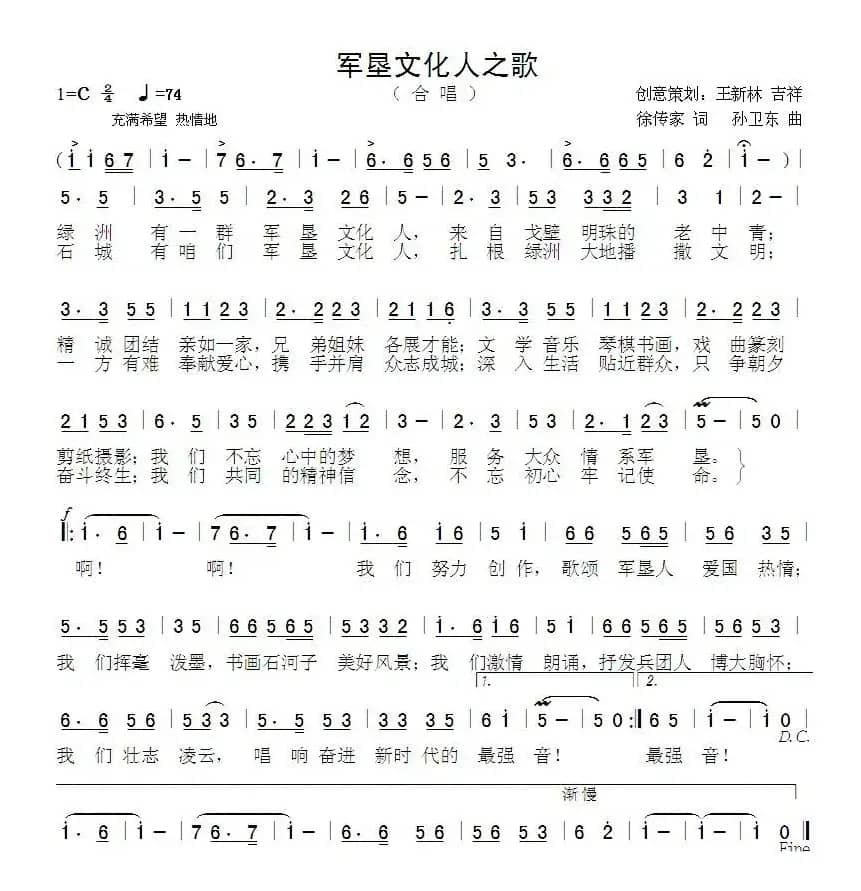 军垦文化人之歌
（ 合 唱 ）
1=C 2/4 ♩=74
创意策划：王新林 吉祥
充满希望 热情地
徐传家 词 孙卫东 曲
( i i 6 7 | i － | 7 6· 7 | i － | 6· 6 5 6 | 5 3· | 6· 6 6 5 | 6 2 | i － ) |
5· 5 | 3· 5 5 | 2· 3 2 6 | 5 － | 2· 3 | 5 3 3 3 2 | 3 1 | 2 － |
绿 洲 有 一 群 军 垦 文化 人， 来 自 戈壁 明珠的 老 中 青；
石 城 有 咱 们 军 垦 文化 人， 扎 根 绿洲 大地播 撒 文 明；
3· 3 5 5 | 1 1 2 3 | 2· 2 2 3 | 2 1 1 6 | 3· 3 5 5 | 1 1 2 3 | 2· 2 2 3 |
精 诚 团结 亲如一家， 兄 弟姐妹 各展才能； 文 学 音乐 琴棋书画， 戏 曲篆刻
一 方 有难 奉献爱心， 携 手并肩 众志成城； 深 入 生活 贴近群众， 只 争朝夕
2 1 5 3 | 6· 5 | 3 5 | 2 2 3 1 2 | 3 － | 2· 3 | 5 3 | 2· 1 2 3 | 5 － | 5 0 |
剪纸摄影； 我 们 不忘 心中的梦 想， 服 务 大众 情 系军 垦。
奋斗终生； 我 们 共同 的精神信 念， 不 忘 初心 牢 记使 命。
f
‖: i· 6 | i － | 7 6· 7 | i － | i· 6 | i 6 | 5 i | 6 6 5 6 5 | 5 3 | 3 5 |
啊！ 啊！ 我 们 努力 创 作， 歌颂 军垦人 爱国 热情；
5· 5 5 3 | 3 5 | 6 6 6 5 6 5 | 5 3 3 2 | i· 6 i 6 | 5 i | 6 6 5 6 5 | 5 6 5 3 |
我 们挥毫 泼墨， 书画石河子 美好风景； 我 们激情 朗诵， 抒发兵团人 博大胸怀；
1.
2.
6· 6 5 6 | 5 3 3 | 5· 5 5 3 | 3 3 3 5 | 6 i | 5 － | 5 0 :‖ 6 5 | i － | i 0 |
D.C.
我 们 壮志 凌云， 唱 响 奋进 新时 代的 最强 音！ 最强 音！
渐 慢
i· 6 | i － | 7 6· 7 | i － | 6· 6 5 6 | 5 3· | 6· 6 6 5 | 6 2 | i － | i 0 ‖
Fine